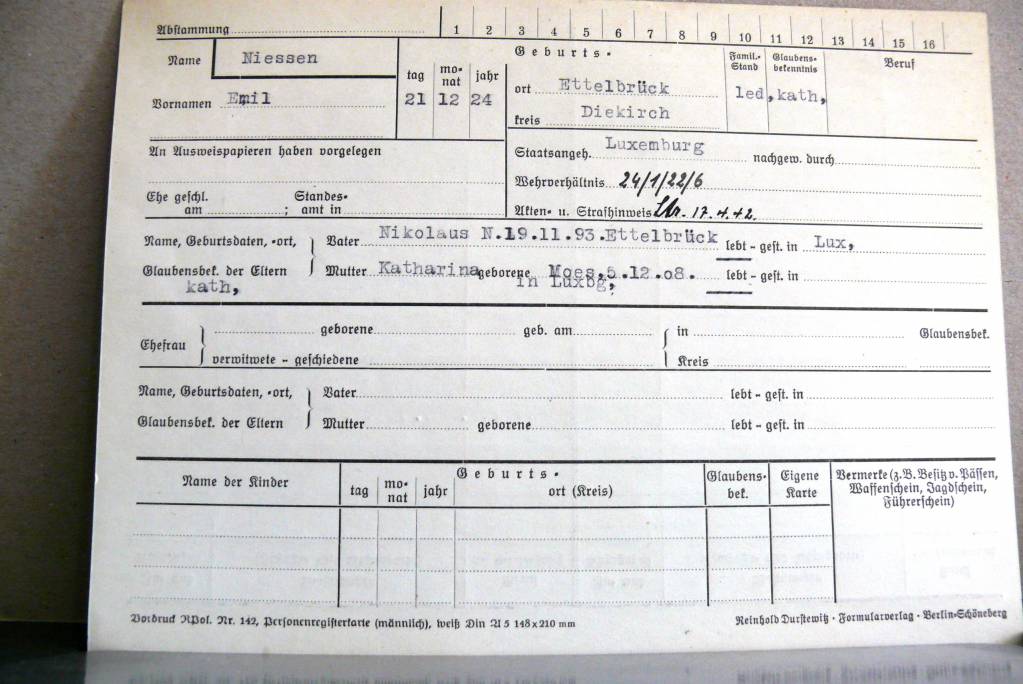 Abstammung 1 2 3 4 5 6 7 8 9 10 11 12 13 14 15 16
Name Niessen
Vornamen Emil
tag monat jahr
21 12 24
Geburts-
ort Ettelbrück
kreis Diekirch
Famil.-Stand
led,
Glaubens-bekenntnis
kath,
Beruf
An Ausweispapieren haben vorgelegen
Ehe geschl. am ; Standes-amt in
Staatsangeh. Luxemburg nachgew. durch
Wehrverhältnis 24/1/22/6
Akten- u. Strafhinweis 17.4.42.
Name, Geburtsdaten, -ort, Vater Nikolaus N.19.11.93.Ettelbrück lebt - gest. in Lux,
Glaubensbek. der Eltern Mutter Katharina geborene Moes,5.12.08. lebt - gest. in
kath, in Luxbg,
Ehefrau geborene geb. am in Glaubensbek.
verwitwete - geschiedene Kreis
Name, Geburtsdaten, -ort, Vater lebt - gest. in
Glaubensbek. der Eltern Mutter geborene lebt - gest. in
Name der Kinder
Geburts-
tag monat jahr ort (Kreis)
Glaubens-bek.
Eigene Karte
Vermerke (z.B. Besitz v. Pässen,
Waffenschein, Jagdschein,
Führerschein)
Vordruck RPol. Nr. 142, Personenregisterkarte (männlich), weiß Din A 5 148 x 210 mm
Reinhold Durstewitz · Formularverlag · Berlin-Schöneberg